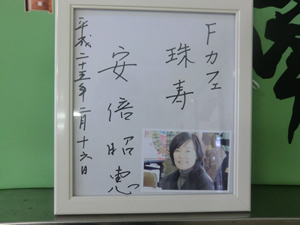 Fカフェ
珠寿
安倍昭恵
平成二十五年二月十六日